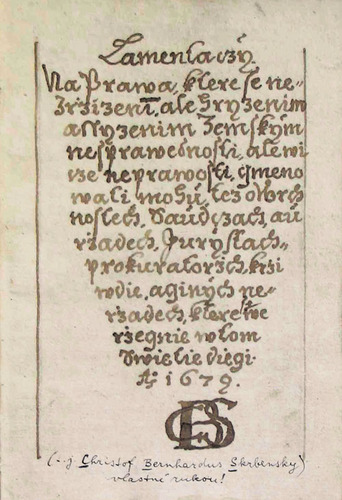 Lamentaczy
Na Prawa, ktere se ne-
zrzizeni, ale hryzenim
a ssyzenim Zemskym
nesprawednosti, ale wi
sse neprawosti, gmeno
wati mohu, tez o wrch
nostech, Saudczach, au
rzadech, Jurystach,,
prokuratorzich, krzi
wdie, a ginych ne-
rzadech, ktere se we
rzegnie w tom
Swietie diegi.
Ao 1679.
CBS
(..j. Christof Bernhardus Skrbensky)
vlastně rukou!